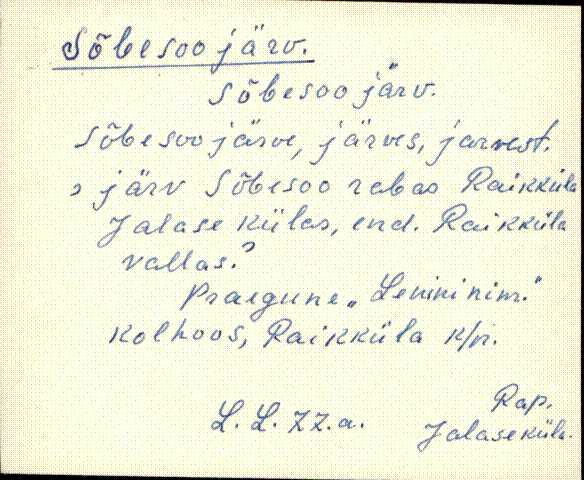 Sõbesoo järv.
Sõbesoo järv.
Sõbesoo järve, järves, järvest.
, järv Sõbesoo rabas Raikküla
Jalase külas, end. Raikküla
vallas.?
Praegune „Lenini nim.“
kolhoos, Raikküla k/n.
L. L. 77.a.
Rap.
Jalase küla.